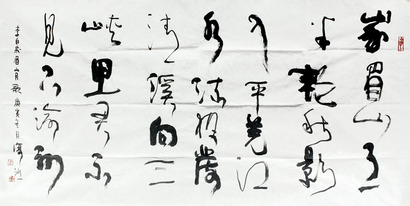 峩眉山月
半輪秋影
入平羌江
水流夜發
清溪向三
峽思君不
見下渝州
李白峨眉山月歌 庚寅